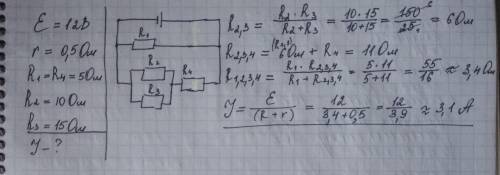 ℰ = 12В
r = 0,5 Ом
R₁ = R₄ = 5 Ом
R₂ = 10 Ом
R₃ = 15 Ом
J - ?
R₁
R₂
R₄
R₃
R₂,₃ = R₂ · R₃ / R₂ + R₃ = 10 · 15 / 10 + 15 = 150 / 25 = 6 Ом
R₂,₃,₄ = 6 Ом + R₄ = 11 Ом
R₁,₂,₃,₄ = R₁ · R₂,₃,₄ / R₁ + R₂,₃,₄ = 5 · 11 / 5 + 11 = 55 / 16 ≈ 3,4 Ом
J = ℰ / (R + r) = 12 / 3,4 + 0,5 = 12 / 3,9 ≈ 3,1 А